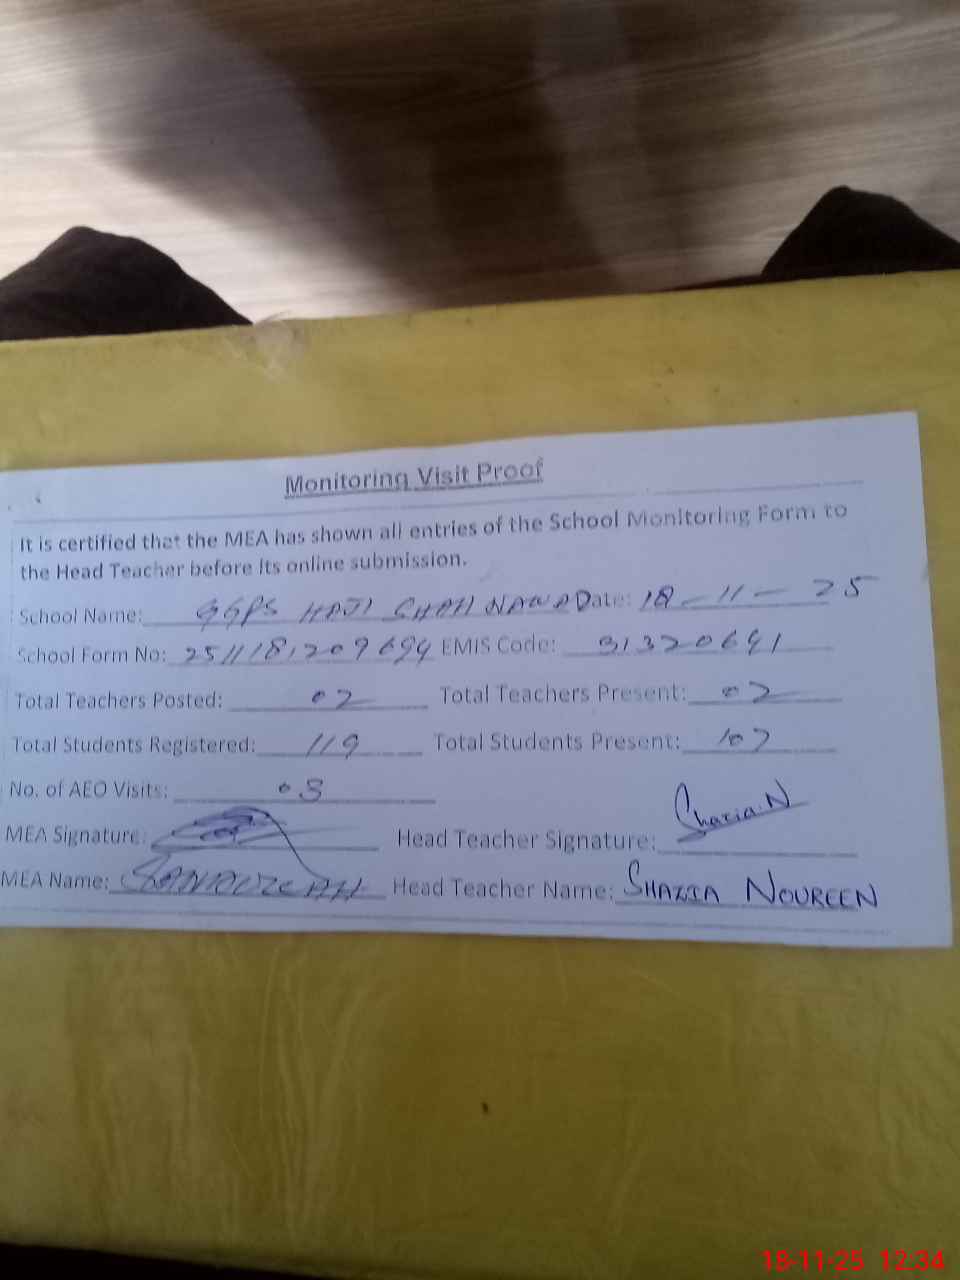 Monitoring Visit Proof
It is certified that the MEA has shown all entries of the School Monitoring Form to
the Head Teacher before its online submission.
School Name: GGPS HAJI SHAH NAWA Date: 18-11-25
School Form No: 2511181209694 EMIS Code: 31320641
Total Teachers Posted: 02 Total Teachers Present: 02
Total Students Registered: 119 Total Students Present: 107
No. of AEO Visits: 03
MEA Signature: Head Teacher Signature: Shazia.N
MEA Name: Head Teacher Name: SHAZIA NOUREEN
18-11-25 12:34